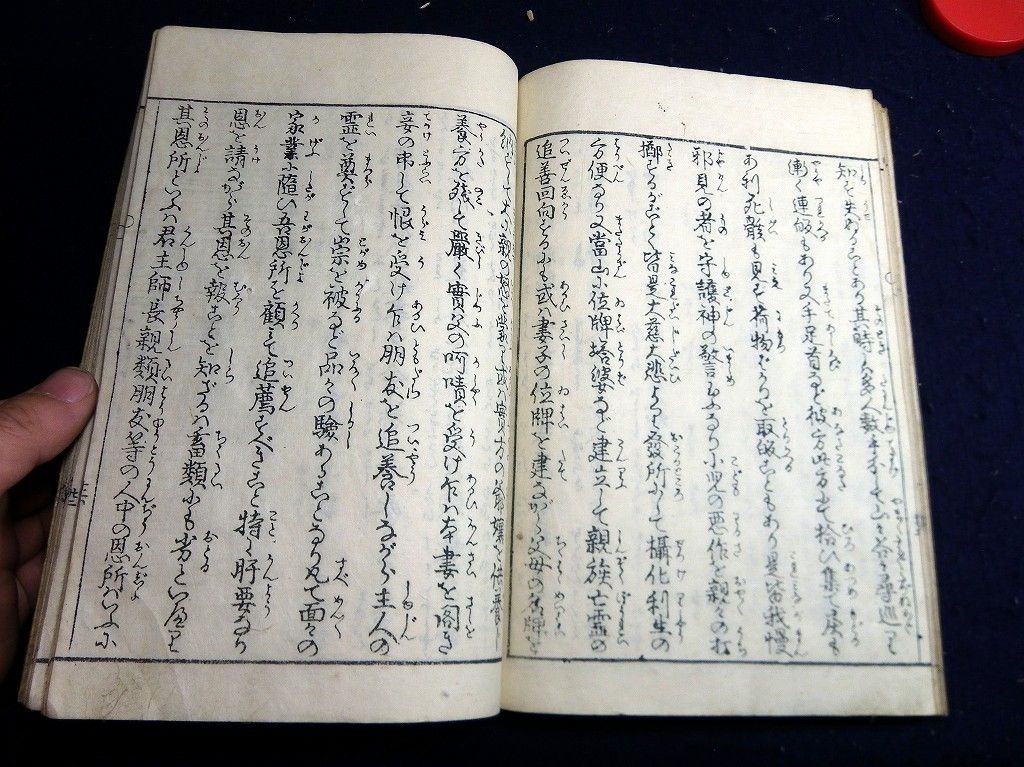 知を失わるゝことあり其時ハ多人数手分して山々谷々尋巡り
漸く連皈もあり又手足首など彼方此方にて拾ひ集て床も
あり死骸も見えず荷物ばかりを取皈ることもあり是皆我慢
邪見の者を守護神の警言なり小児の悪作を親々の打
擲するがごとく皆是大慈大悲より發所にして攝化利生の
方便なり又當山に位牌塔婆など建立して親族亡霊の
追善回向するにも或ハ妻子の位牌を建ながら父母の位牌を
養方を残て嚴く實父の呵嘖を受け乍ハ本妻を閣き
妾の弔して恨を受け乍ハ朋友を追善しながら主人の
霊を奠ずして祟を被るなど品々の驗あることなり凡て面々の
家業に隨ひ吾恩所を顧て追薦すべきこと特に肝要なり
恩を請ながら其恩を報ことを知ざるハ畜類にも劣といへり
其恩所といふハ君主師長親類朋友等の人中の恩所はいふに